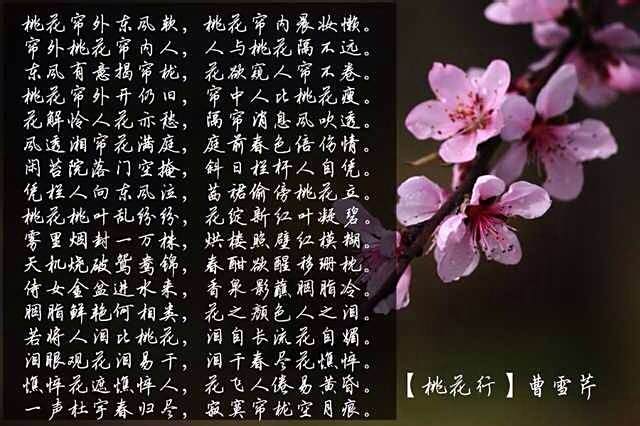 桃花帘外东风软， 桃花帘内晨妆懒。
帘外桃花帘内人， 人与桃花隔不远。
东风有意揭帘栊， 花欲窥人帘不卷。
桃花帘外开仍旧， 帘中人比桃花瘦。
花解怜人花亦愁， 隔帘消息风吹透。
风透湘帘花满庭， 庭前春色倍伤情。
闲苔院落门空掩， 斜日栏杆人自凭。
凭栏人向东风泣， 茜裙偷傍桃花立。
桃花桃叶乱纷纷， 花绽新红叶凝碧。
雾里烟封一万株， 烘楼照壁红模糊。
天机烧破鸳鸯锦， 春酣欲醒移珊枕。
侍女金盆进水来， 香泉影蘸胭脂冷。
胭脂鲜艳何相类， 花之颜色人之泪。
若将人泪比桃花， 泪自长流花自媚。
泪眼观花泪易干， 泪干春尽花憔悴。
憔悴花遮憔悴人， 花飞人倦易黄昏。
一声杜宇春归尽， 寂寞帘栊空月痕。
【桃花行】曹雪芹